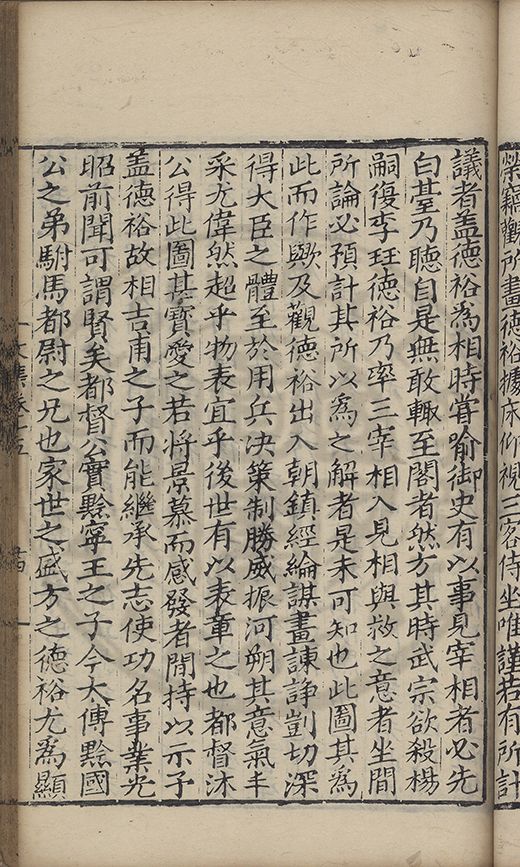 榮竊觀所畫德裕據床仰視三客侍坐唯謹若有所計
議者盖德裕為相時嘗喻御史有以事見宰相者必先
白臺乃聴自是無敢輙至閣者然方其時武宗欲殺楊
嗣復李珏德裕乃率三宰相入見相與救之意者坐間
所論必預計其所以為之解者是未可知也此圖其為
此而作歟及觀德裕出入朝鎮經綸謀畫諫諍剴切深
得大臣之體至於用兵决策制勝威振河朔其意氣丰
采尤偉然超乎物表宜乎後世有以表章之也都督沐
公得此圖其寳愛之若將景慕而感發者間持以示子
盖德裕故相吉甫之子而能繼承先志使功名事業光
昭前聞可謂賢矣都督公實黔寧王之子今太傅黔國
公之弟駙馬都尉之兄也家世之盛方之德裕尤為顯
文集卷十五